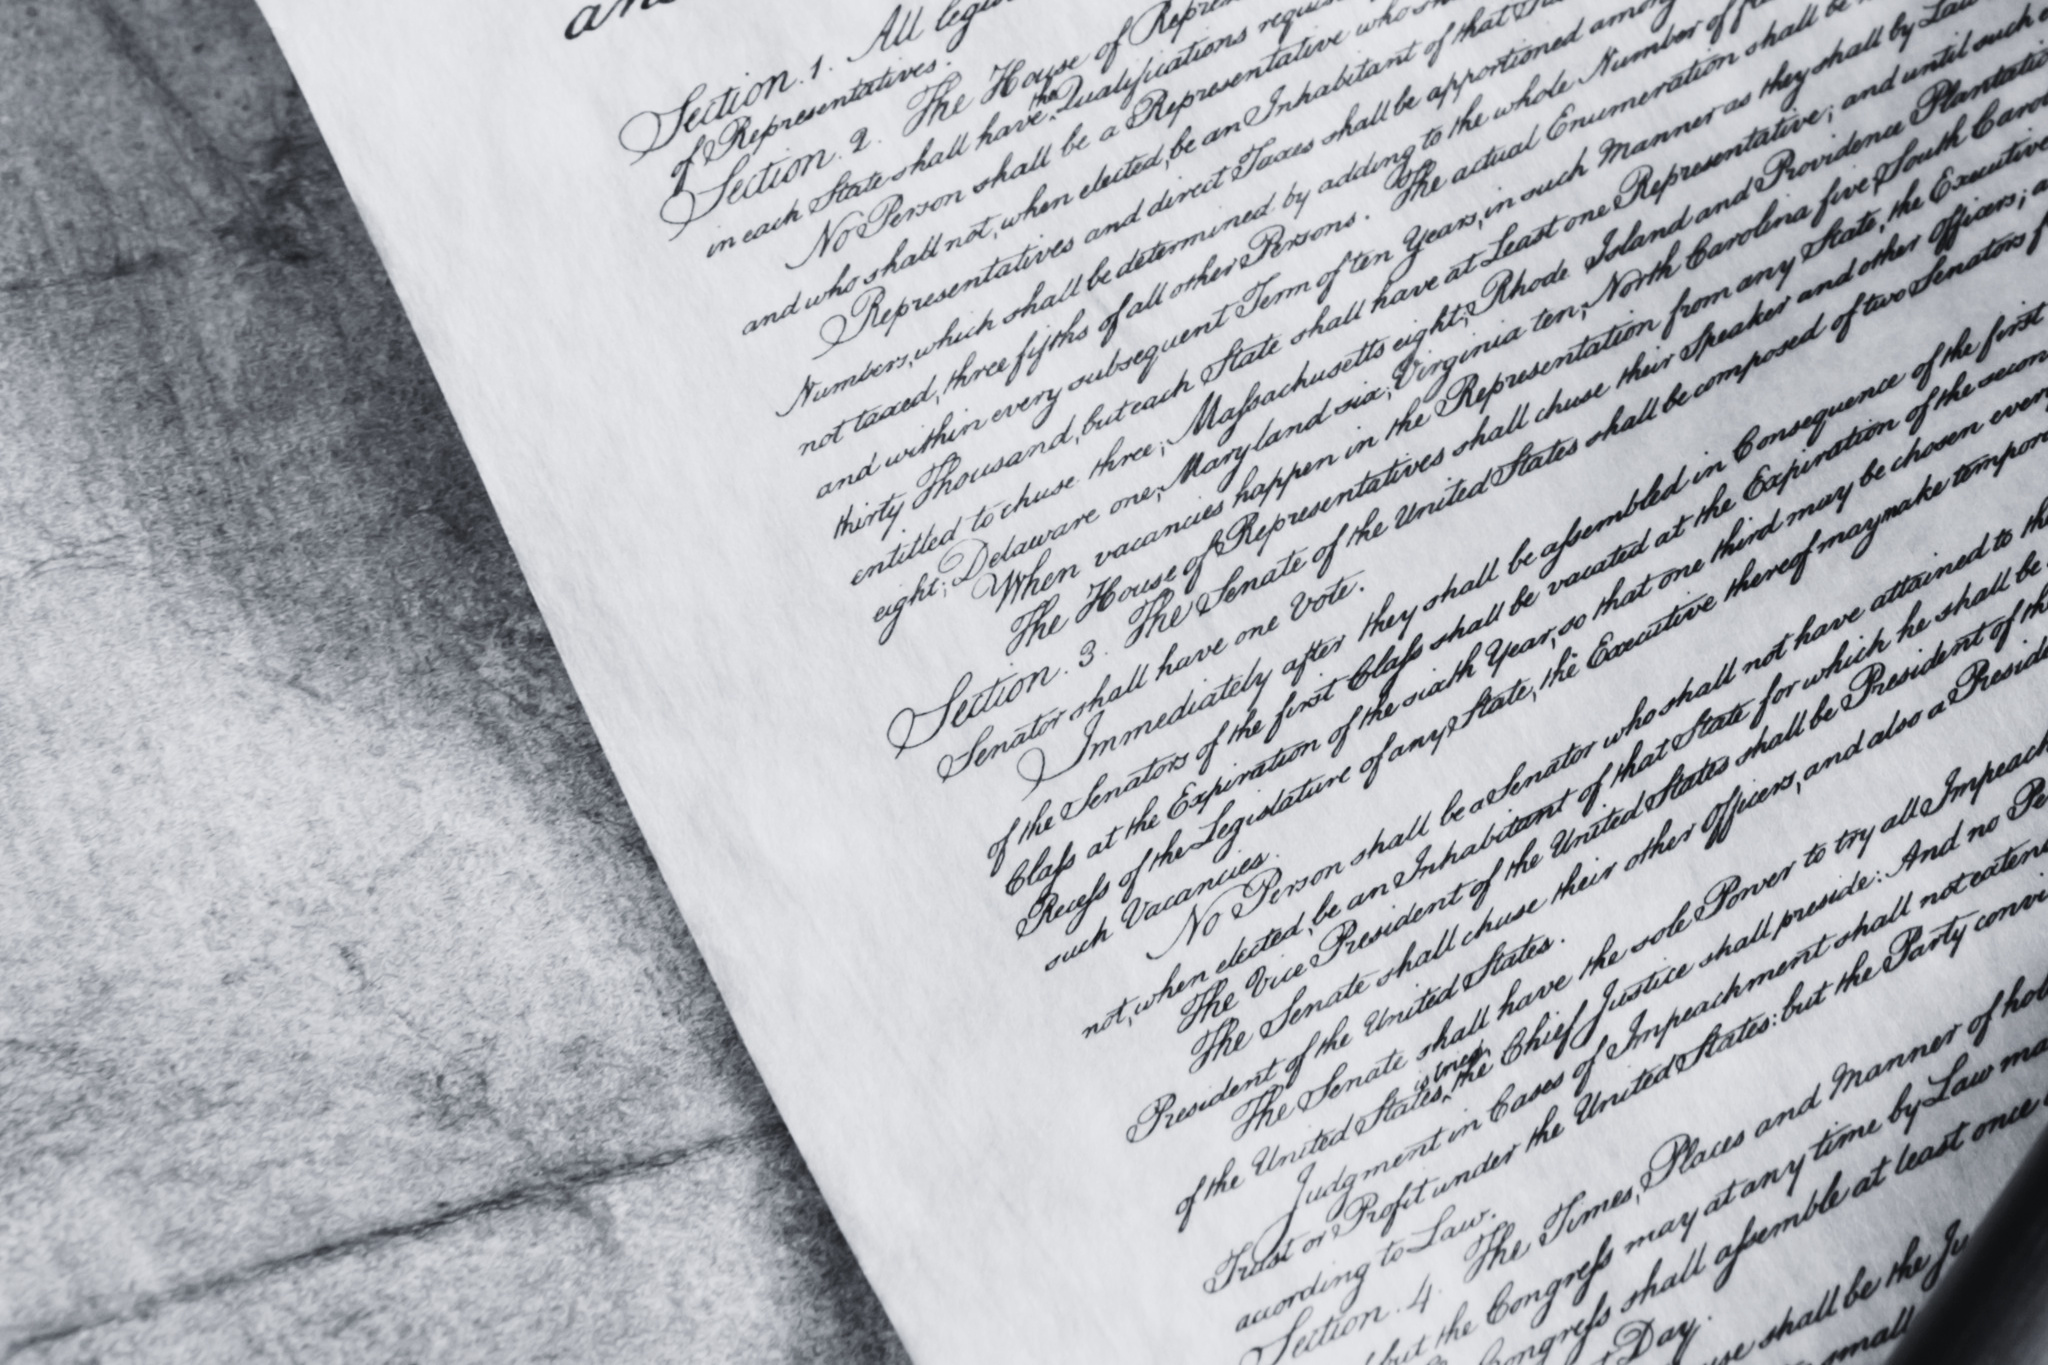 Section. 1. All legis
of Representatives.
Section. 2. The House of Repres
in each State shall have the Qualifications requi
No Person shall be a Representative who sha
and who shall not, when elected, be an Inhabitant of that
Representatives and direct Taxes shall be apportioned among
Numbers, which shall be determined by adding to the whole Number of
not taxed, three fifths of all other Persons. The actual Enumeration shall be
and within every subsequent Term of ten Years, in such Manner as they shall by Law
thirty Thousand, but each State shall have at Least one Representative; and until such
entitled to chuse three, Maſsachusetts eight, Rhode Island and Providence Plantatio
eight, Delaware one, Maryland six, Virginia ten, North Carolina five, South Carol
When vacancies happen in the Representation from any State, the Executive
The House of Representatives shall chuse their Speaker and other Officers; a
Section. 3. The Senate of the United States shall be composed of two Senators f
Senator shall have one Vote.
Immediately after they shall be aſsembled in Consequence of the first
of the Senators of the first Claſs shall be vacated at the Expiration of the secon
Claſs at the Expiration of the sixth Year, so that one third may be chosen ever
Receſs of the Legislature of any State, the Executive thereof may make tempora
such Vacancies.
No Person shall be a Senator who shall not have attained to the
not, when elected, be an Inhabitant of that State for which he shall be
The Vice President of the United States shall be President of the
The Senate shall chuse their other Officers, and also a Preside
President of the United States.
The Senate shall have the sole Power to try all Impeach
of the United States is tried, the Chief Justice shall preside: And no Pe
Judgment in Cases of Impeachment shall not exten
Trust or Profit under the United States: but the Party convi
according to Law.
Section. 4. The Times, Places and Manner of hol
but the Congreſs may at any time by Law ma
Congreſs shall aſsemble at least once
Day.
shall be the Ju
small